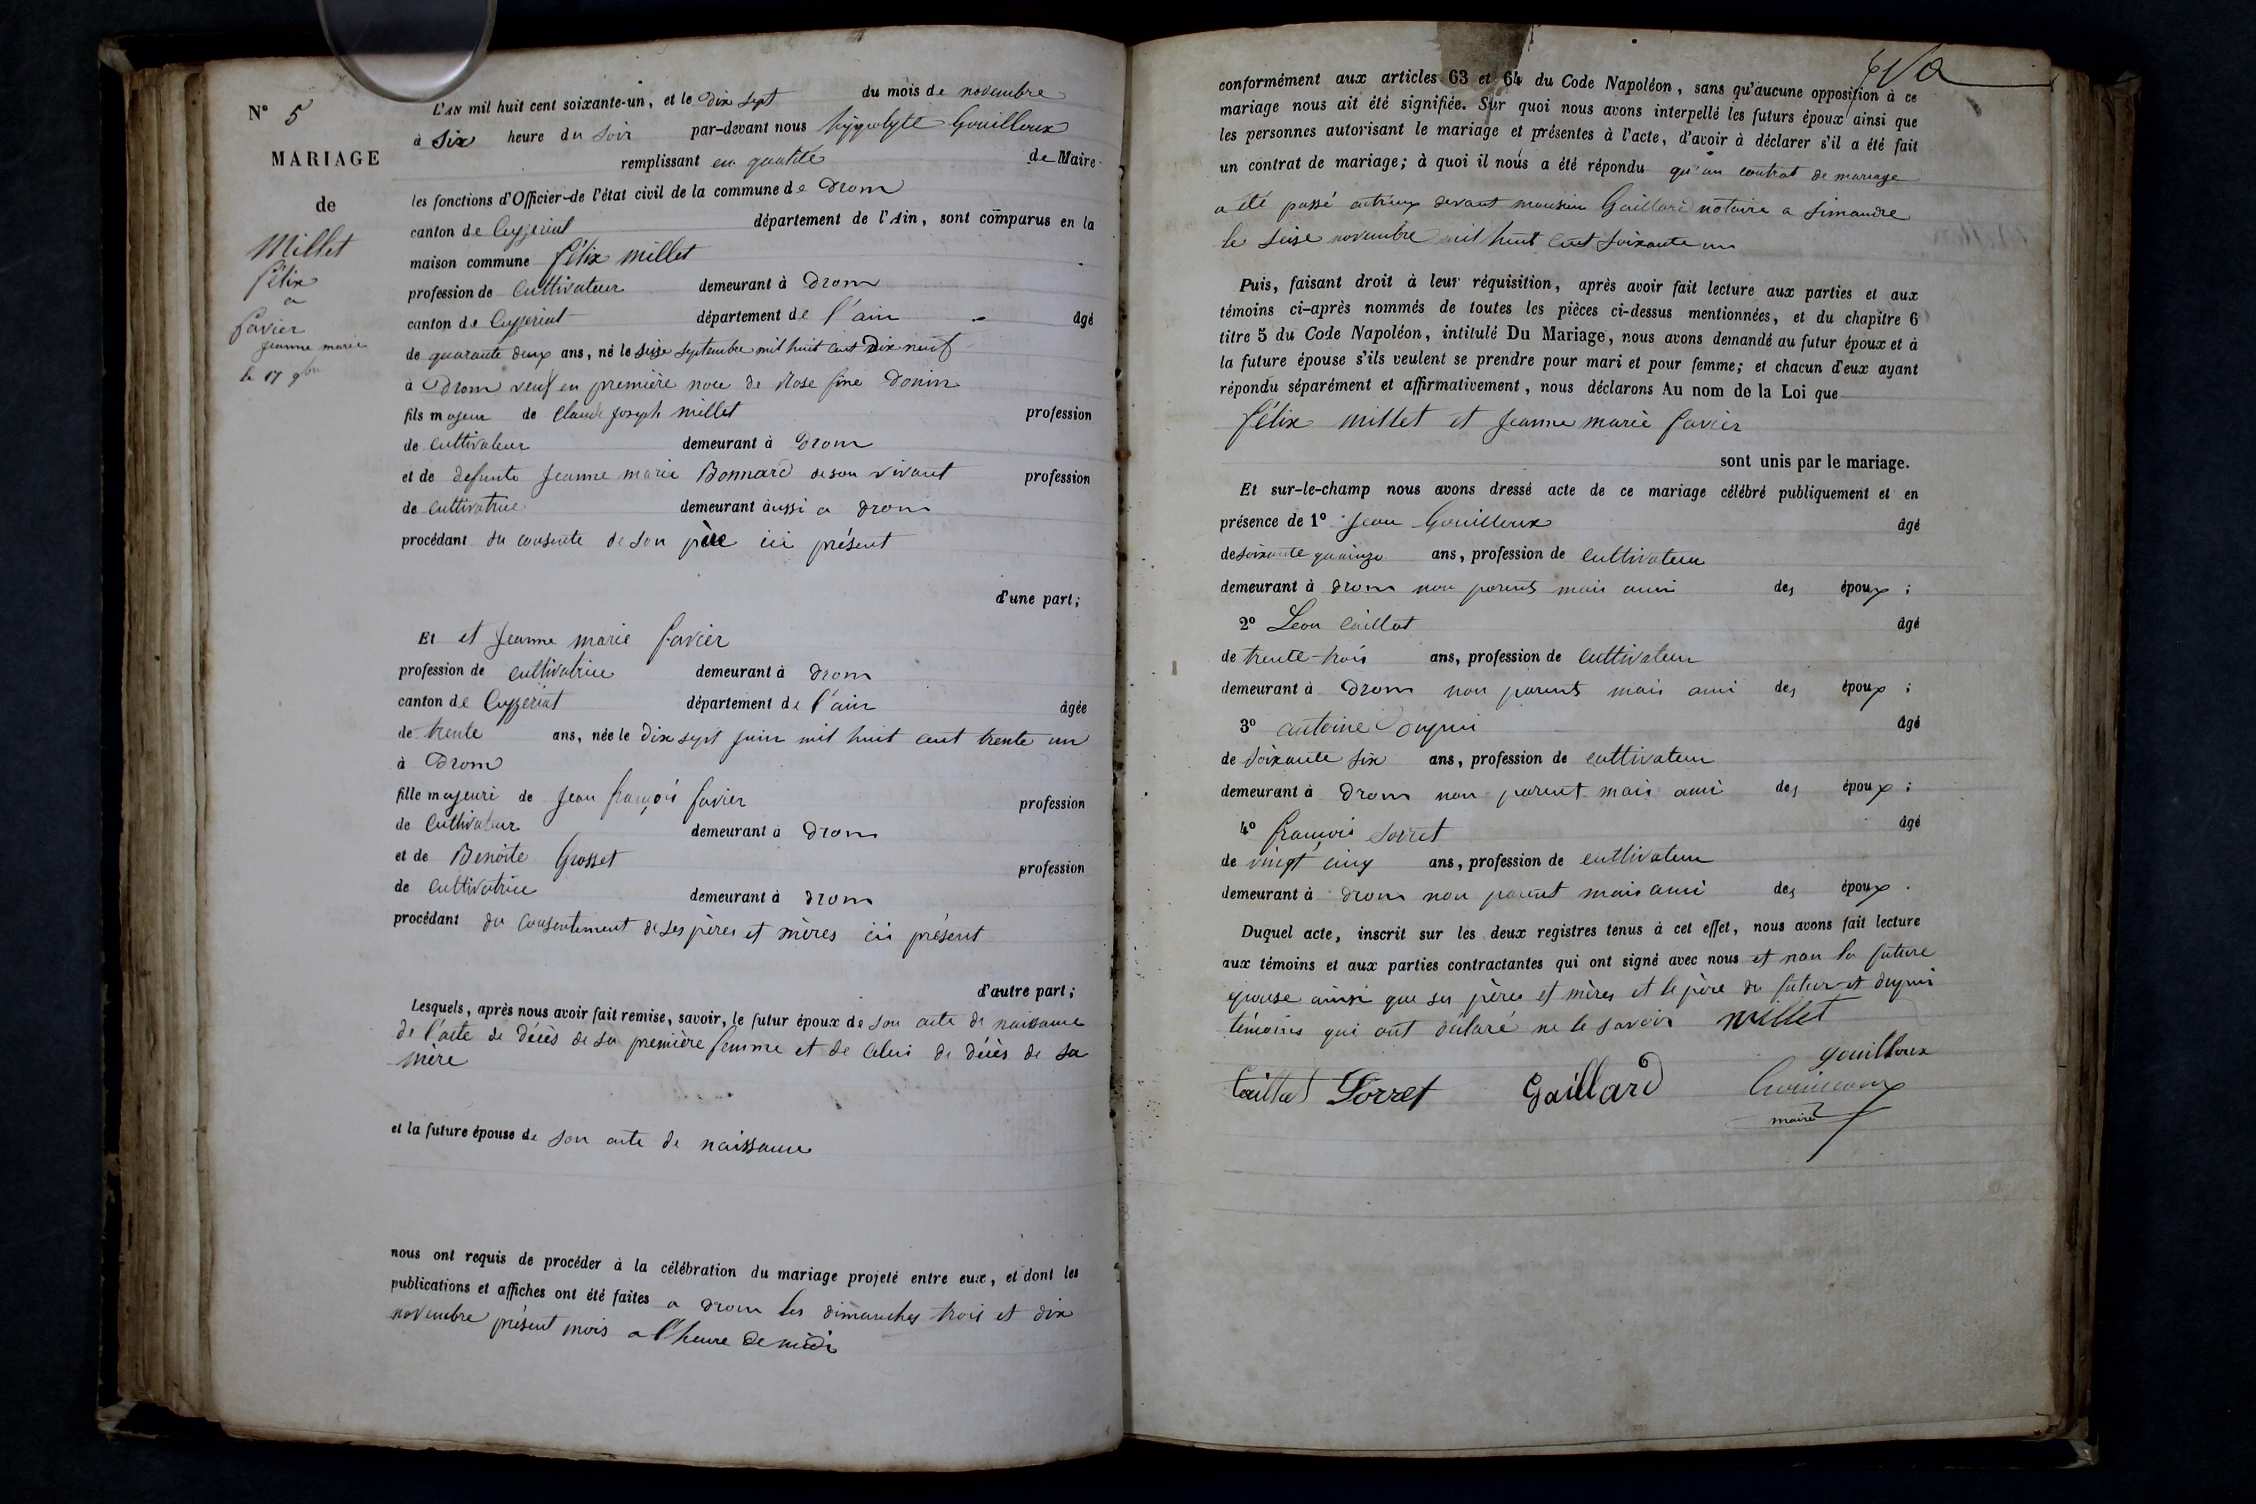 N° 5
MARIAGE
de
Millet
félix
a
favier
jeanne marie
le 17 9bre
L'AN mil huit cent soixante-un, et le dix sept du mois de novembre
à six heure du soir par-devant nous hyppolyte Gouilloux
remplissant en qualité de Maire
les fonctions d'Officier de l'état civil de la commune de Drom
canton de Ceyzeriat département de l'Ain, sont comparus en la
maison commune félix millet
profession de Cultivateur demeurant à Drom
canton de Ceyzeriat département de l'ain âgé
de quarante deux ans, né le seize septembre mil huit cent dix neuf
à Drom veuf en première noce de Rose fine Donin
fils majeur de Claude joseph millet profession
de cultivateur demeurant à Drom
et de defunte jeanne marie Bonnard de son vivant profession
de cultivatrice demeurant aussi a drom
procédant du consente de son père ici présent
d'une part;
Et et jeanne marie favier
profession de cultivatrice demeurant à drom
canton de Ceyzeriat département de l'ain âgée
de trente ans, née le dix sept juin mil huit cent trente un
à Drom
fille majeure de jean françois favier profession
de Cultivateur demeurant à drom
et de Benoite Grosset profession
de cultivatrice demeurant à drom
procédant du consentement de ses pères et mères ici présent
d'autre part;
Lesquels, après nous avoir fait remise, savoir, le futur époux de son acte de naissance
de l'acte de décès de sa première femme et de celui de décès de sa
mère
et la future épouse de son acte de naissance
nous ont requis de procéder à la célébration du mariage projeté entre eux, et dont les
publications et affiches ont été faites a drom les dimanches trois et dix
novembre présent mois a l'heure de midi
conformément aux articles 63 et 64 du Code Napoléon, sans qu'aucune opposition à ce
mariage nous ait été signifiée. Sur quoi nous avons interpellé les futurs époux ainsi que
les personnes autorisant le mariage et présentes à l'acte, d'avoir à déclarer s'il a été fait
un contrat de mariage; à quoi il nous a été répondu qu'un contrat de mariage
a été passé entr'eux devant monsieur Gaillard notaire a Simandre
le seise novembre mil huit cent soixante un
Puis, faisant droit à leur réquisition, après avoir fait lecture aux parties et aux
témoins ci-après nommés de toutes les pièces ci-dessus mentionnées, et du chapitre 6
titre 5 du Code Napoléon, intitulé Du Mariage, nous avons demandé au futur époux et à
la future épouse s'ils veulent se prendre pour mari et pour femme; et chacun d'eux ayant
répondu séparément et affirmativement, nous déclarons Au nom de la Loi que
félix millet et jeanne marie favier
sont unis par le mariage.
Et sur-le-champ nous avons dressé acte de ce mariage célébré publiquement et en
présence de 1° jean Gouilloux âgé
de soixante quainze ans, profession de cultivateur
demeurant à drom non parents mais ami des époux ;
2° Leon Caillat âgé
de trente-trois ans, profession de cultivateur
demeurant à Drom non parents mais ami des époux ;
3° antoine Dupui âgé
de soixante six ans, profession de cultivateur
demeurant à Drom non parent mais ami des époux ;
4° françois Sorret âgé
de vingt cinq ans, profession de cultivateur
demeurant à drom non parent mais ami des époux .
Duquel acte, inscrit sur les deux registres tenus à cet effet, nous avons fait lecture
aux témoins et aux parties contractantes qui ont signé avec nous et non la future
epouse ainsi que ses pères et mères et le père du futur et dupui
témoins qui ont déclaré ne le savoir millet
gouilloux
Caillat Sorret Gaillard Gouilloux
maire